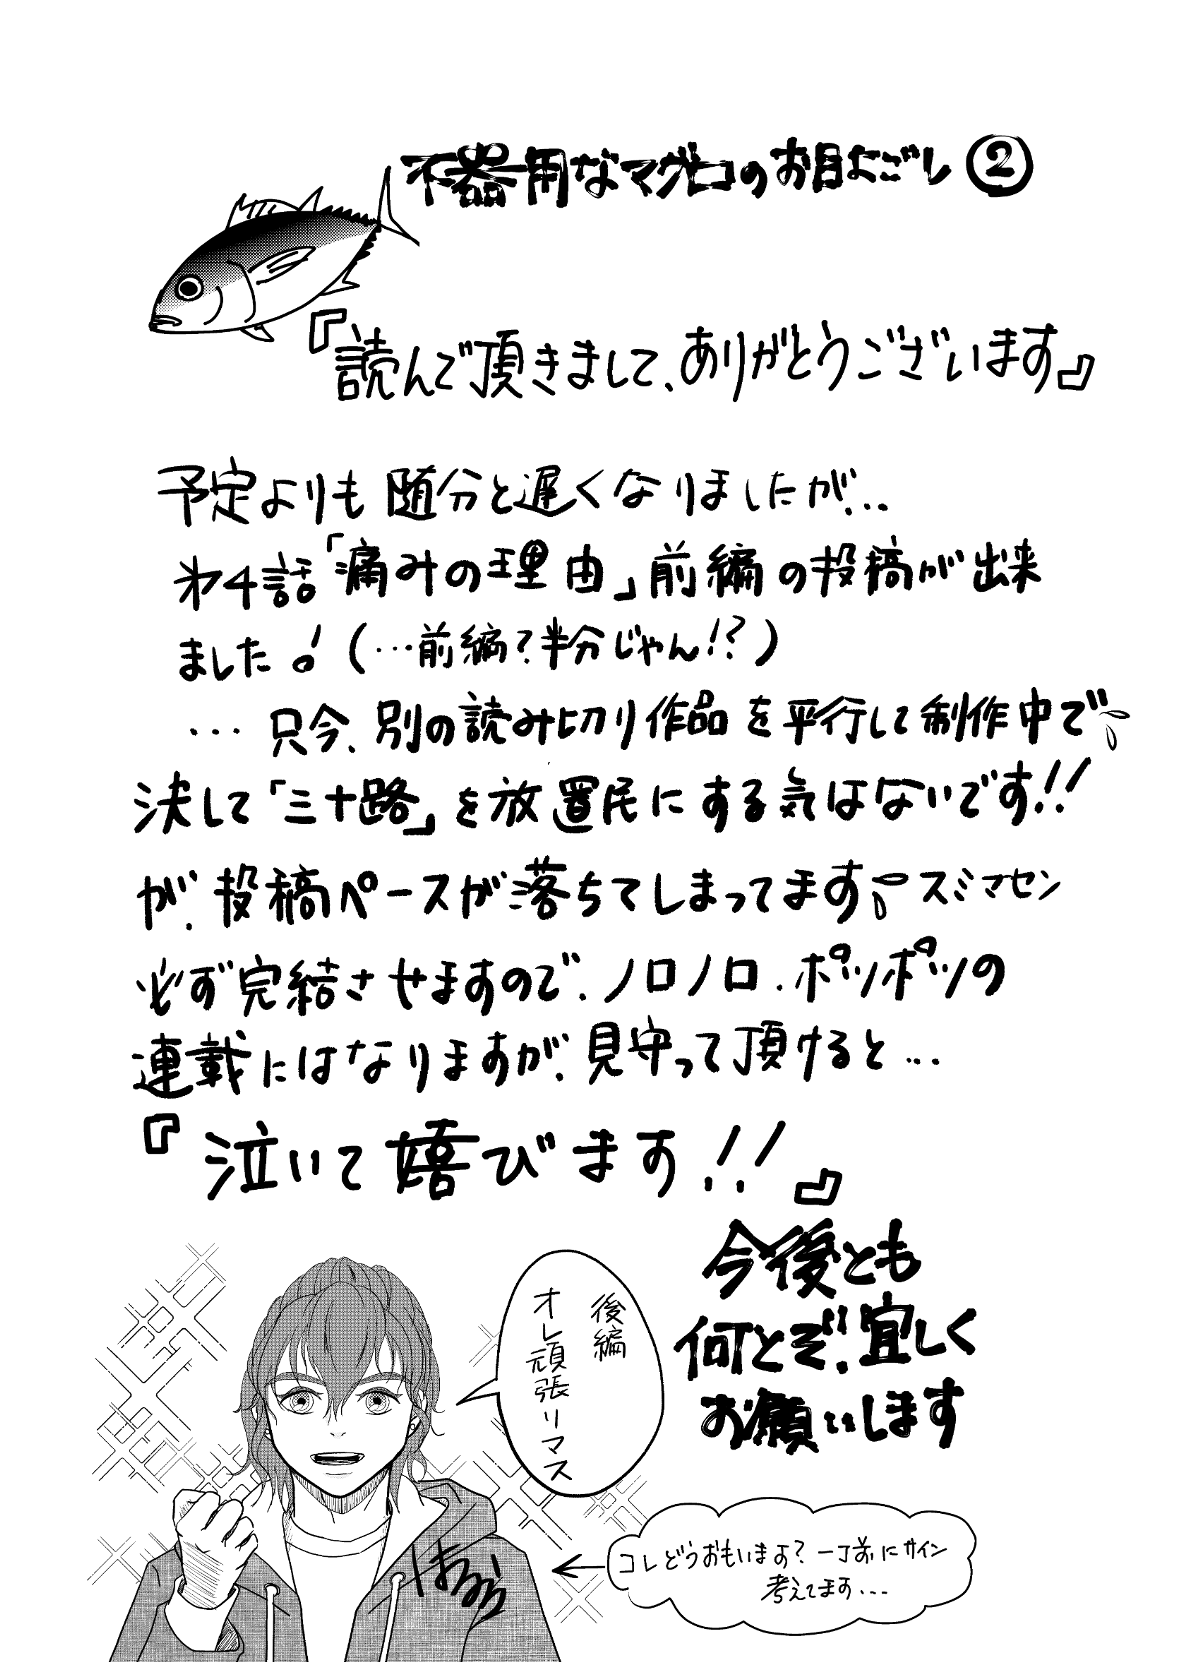 不器用なマグロのお目よごし②
『読んで頂きまして、ありがとうございます』
予定よりも随分と遅くなりましたが…
第4話「痛みの理由」前編の投稿が出来
ました!(…前編?半分じゃん!?)
…只今、別の読み切り作品を平行して制作中で
決して「三十路」を放置民にする気はないです!!
が、投稿ペースが落ちてしまってます スミマセン
必ず完結させますので、ノロノロ、ポツポツの
連載にはなりますが、見守って頂けると…
『泣いて嬉びます!!』
今後とも
何とぞ、宜しく
お願いします
後編
オレ頑張リマス
コレどうおもいます?一丁前にサイン
考えてます…